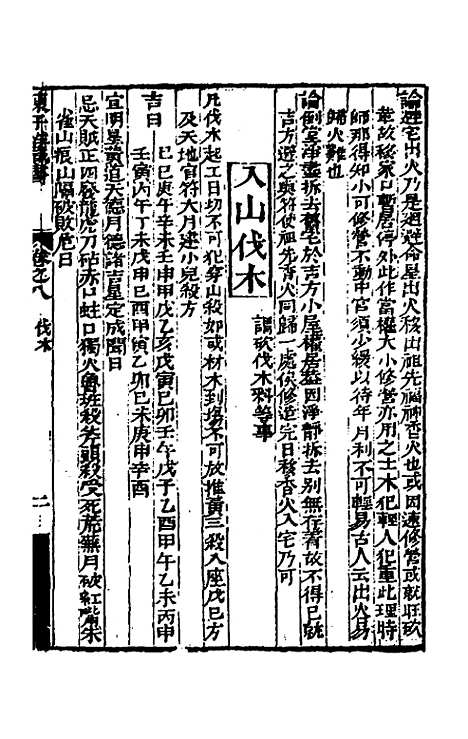 論避宅出火乃是廻避命星出火移出祖先福神香火也或因遠修營或就旺砍
章故移家口暫居得外此作當權大小修營亦用之土木犯輕人犯重此理時
師那得知小可修營不動中宮須少緩以待年月利不可輕易古人云出火易
歸火難也
論倒堂淨盡拆去舊宅於吉方小屋權居盖因淨靜拆去別無存着故不得已就
吉方遷之與符使祖先香火同歸一處俟修造完日移香火入宅乃可
入山伐木
謂砍伐木料等事
凡伐木起工日切不可犯穿山殺如或材木到塲不可放推黃三殺入座戊己方
及天地官符大月建小兒殺方
吉日
己巳庚午辛未壬申甲戌乙亥戊寅己卯壬午戊子乙酉甲午乙未丙申
壬寅丙午丁未戊申己酉甲寅乙卯己未庚申辛酉
宜明星黃道天德月德諸吉星定成開日
忌天賊正四廢龍虎刀砧赤口蛀口獨火魯班殺斧頭殺受死荒蕪月破紅嘴朱
雀山痕山隔破敗危日
卷之八
伐木
二